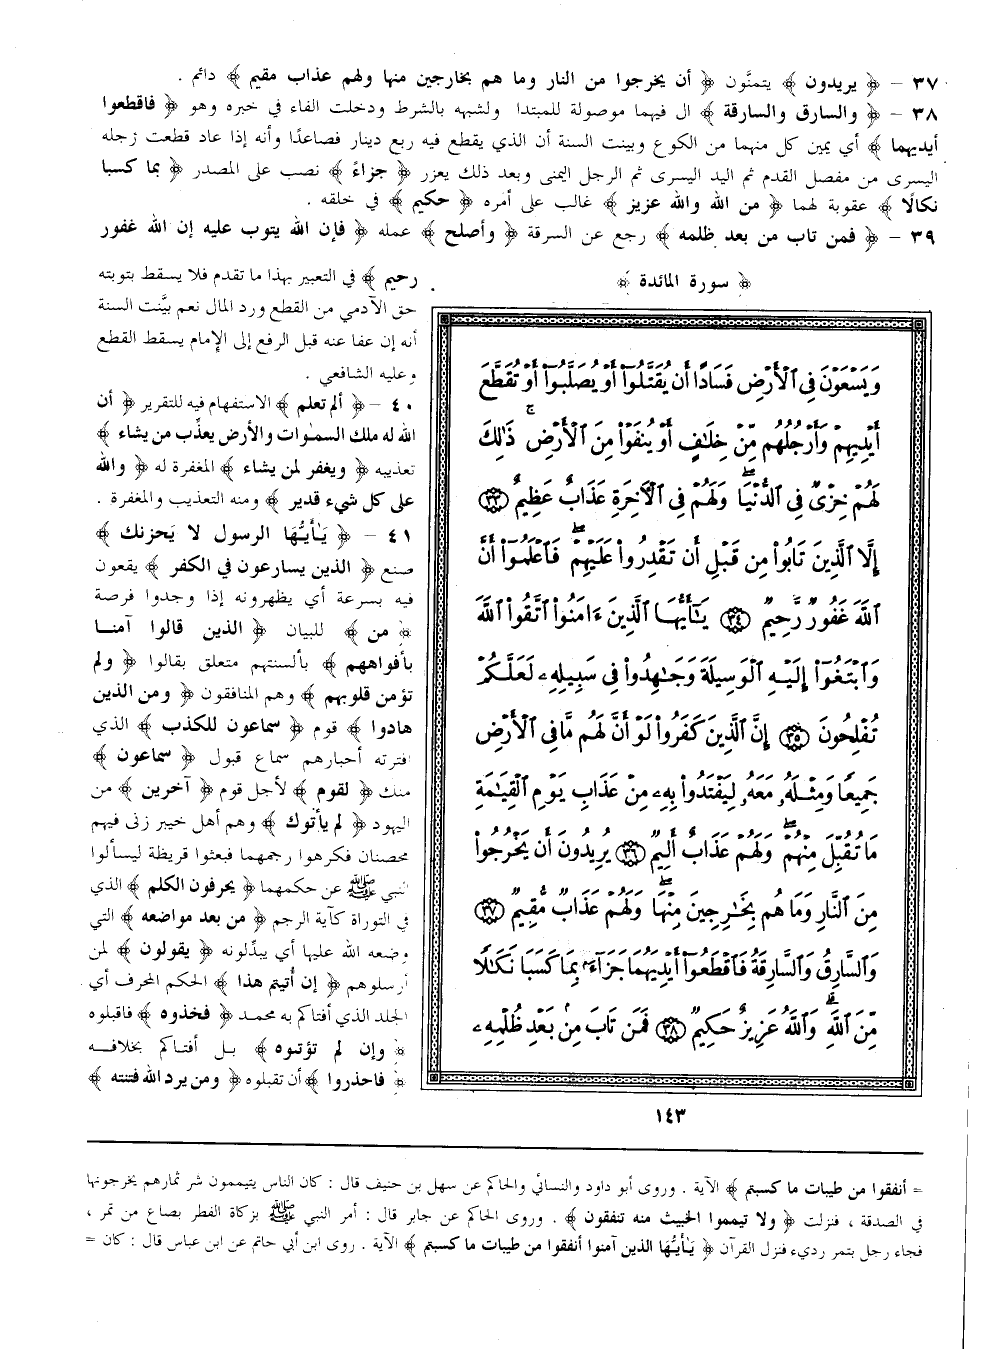 ٣٧ - ﴿ يريدون ﴾ يتمنَّون ﴿ أن يخرجوا من النار وما هم بخارجين منها ولهم عذاب مقيم ﴾ دائم .
٣٨ - ﴿ والسارق والسارقة ﴾ ال فيهما موصولة للمبتدا ولشبهه بالشرط ودخلت الفاء في خبره وهو ﴿ فاقطعوا
أيديهما ﴾ أي يمين كل منهما من الكوع وبينت السنة أن الذي يقطع فيه ربع دينار فصاعدًا وأنه إذا عاد قطعت رجله
اليسرى من مفصل القدم ثم اليد اليسرى ثم الرجل اليمنى وبعد ذلك يعزر ﴿ جزاءً ﴾ نصب على المصدر ﴿ بما كسبا
نكالًا ﴾ عقوبة لهما ﴿ من الله والله عزيز ﴾ غالب على أمره ﴿ حكيم ﴾ في خلقه .
٣٩ - ﴿ فمن تاب من بعد ظلمه ﴾ رجع عن السرقة ﴿ وأصلح ﴾ عمله ﴿ فإن الله يتوب عليه إن الله غفور
﴿ سورة المائدة ﴾
وَيَسْعَوْنَ فِي ٱلْأَرْضِ فَسَادًا أَن يُقَتَّلُوٓا۟ أَوْ يُصَلَّبُوٓا۟ أَوْ تُقَطَّعَ
أَيْدِيهِمْ وَأَرْجُلُهُم مِّنْ خِلَٰفٍ أَوْ يُنفَوْا۟ مِنَ ٱلْأَرْضِ ۚ ذَٰلِكَ
لَهُمْ خِزْىٌ فِي ٱلدُّنْيَا ۖ وَلَهُمْ فِي ٱلْآخِرَةِ عَذَابٌ عَظِيمٌ ٣٣
إِلَّا ٱلَّذِينَ تَابُوا۟ مِن قَبْلِ أَن تَقْدِرُوا۟ عَلَيْهِمْ ۖ فَٱعْلَمُوٓا۟ أَنَّ
ٱللَّهَ غَفُورٌ رَّحِيمٌ ٣٤ يَٰٓأَيُّهَا ٱلَّذِينَ ءَامَنُوا۟ ٱتَّقُوا۟ ٱللَّهَ
وَٱبْتَغُوٓا۟ إِلَيْهِ ٱلْوَسِيلَةَ وَجَٰهِدُوا۟ فِي سَبِيلِهِۦ لَعَلَّكُمْ
تُفْلِحُونَ ٣٥ إِنَّ ٱلَّذِينَ كَفَرُوا۟ لَوْ أَنَّ لَهُم مَّا فِي ٱلْأَرْضِ
جَمِيعًا وَمِثْلَهُۥ مَعَهُۥ لِيَفْتَدُوا۟ بِهِۦ مِنْ عَذَابِ يَوْمِ ٱلْقِيَٰمَةِ
مَا تُقُبِّلَ مِنْهُمْ ۖ وَلَهُمْ عَذَابٌ أَلِيمٌ ٣٦ يُرِيدُونَ أَن يَخْرُجُوا۟
مِنَ ٱلنَّارِ وَمَا هُم بِخَٰرِجِينَ مِنْهَا ۖ وَلَهُمْ عَذَابٌ مُّقِيمٌ ٣٧
وَٱلسَّارِقُ وَٱلسَّارِقَةُ فَٱقْطَعُوٓا۟ أَيْدِيَهُمَا جَزَآءًۢ بِمَا كَسَبَا نَكَٰلًا
مِّنَ ٱللَّهِ ۗ وَٱللَّهُ عَزِيزٌ حَكِيمٌ ٣٨ فَمَن تَابَ مِنۢ بَعْدِ ظُلْمِهِۦ
رحيم ﴾ في التعبير بهذا ما تقدم فلا يسقط بتوبته
حق الآدمي من القطع ورد المال نعم بيَّنت السنة
أنه إن عفا عنه قبل الرفع إلى الإمام يسقط القطع
وعليه الشافعي .
٤٠ - ﴿ ألم تعلم ﴾ الاستفهام فيه للتقرير ﴿ أن
الله له ملك السمٰوات والأرض يعذِّب من يشاء ﴾
تعذيبه ﴿ ويغفر لمن يشاء ﴾ المغفرة له ﴿ والله
على كل شيء قدير ﴾ ومنه التعذيب والمغفرة .
٤١ - ﴿ يَٰأيُّهَا الرسول لا يَحزنك ﴾
صنع ﴿ الذين يسارعون في الكفر ﴾ يقعون
فيه بسرعة أي يظهرونه إذا وجدوا فرصة
﴿ من ﴾ للبيان ﴿ الذين قالوا آمنـا
بأفواههم ﴾ بألسنتهم متعلق بقالوا ﴿ ولم
تؤمن قلوبهم ﴾ وهم المنافقون ﴿ ومن الذين
هادوا ﴾ قوم ﴿ سماعون للكذب ﴾ الذي
افترته أحبارهم سماع قبول ﴿ سماعون ﴾
منك ﴿ لقوم ﴾ لأجل قوم ﴿ آخرين ﴾ من
اليهود ﴿ لم يأتوك ﴾ وهم أهل خيبر زنى فيهم
محصنان فكرهوا رجمهما فبعثوا قريظة ليسألوا
النبي ﷺ عن حكمهما ﴿ يحرفون الكلم ﴾ الذي
في التوراة كآية الرجم ﴿ من بعد مواضعه ﴾ التي
وضعه الله عليها أي يبدِّلونه ﴿ يقولون ﴾ لمن
أرسلوهم ﴿ إن أُتيتم هذا ﴾ الحكم المحرف أي
الجلد الذي أفتاكم به محمد ﴿ فخذوه ﴾ فاقبلوه
﴿ وإن لم تؤتـوه ﴾ بـل أفتـاكم بخلافـه
﴿ فاحذروا ﴾ أن تقبلوه ﴿ ومن يرد الله فتنته ﴾
١٤٣
= أنفقوا من طيبات ما كسبتم ﴾ الآية . وروى أبو داود والنسائي والحاكم عن سهل بن حنيف قال : كان الناس يتيممون شر ثمارهم يخرجونها
في الصدقة ، فنزلت ﴿ ولا تيمموا الخبيث منه تنفقون ﴾ . وروى الحاكم عن جابر قال : أمر النبي ﷺ بزكاة الفطر بصاع من تمر ،
فجاء رجل بتمر رديء فنزل القرآن ﴿ يَٰأيُّهَا الذين آمنوا أنفقوا من طيبات ما كسبتم ﴾ الآية . روى ابن أبي حاتم عن ابن عباس قال : كان =